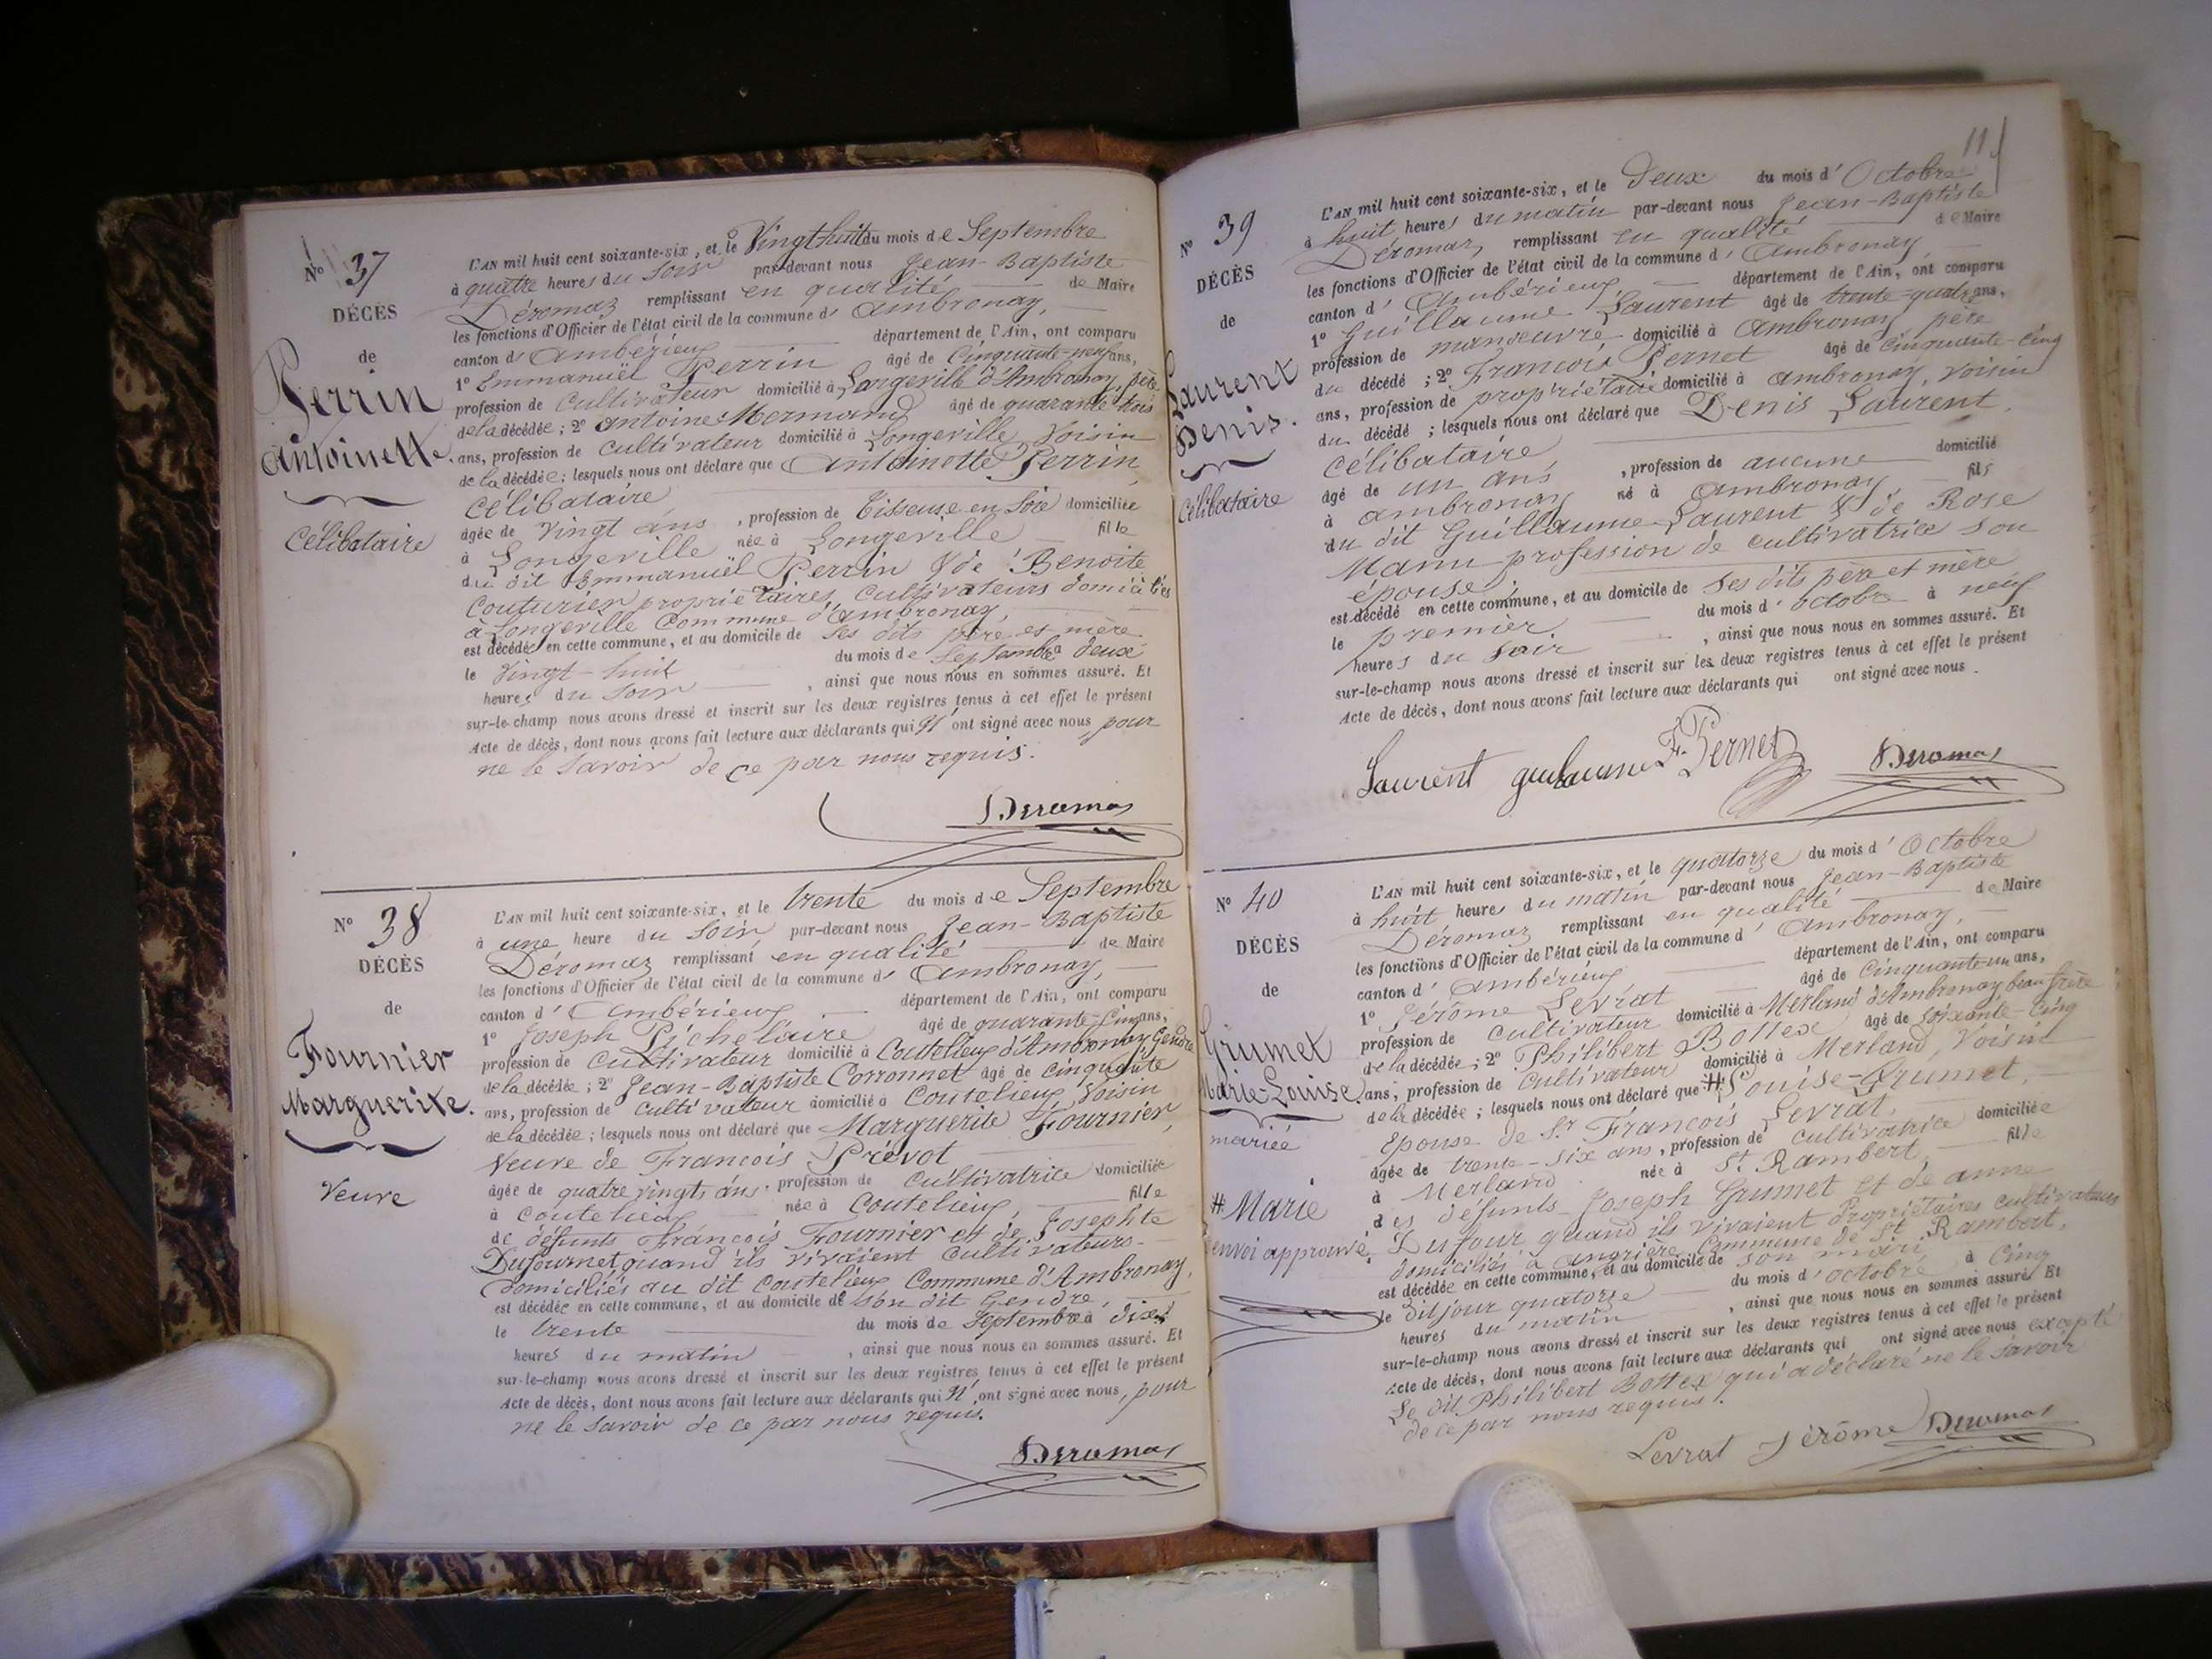 N° 37
DÉCÈS
de
Perrin
Antoinette.
Célibataire
L'AN mil huit cent soixante-six, et le Vingt huit du mois de Septembre
à quatre heures du Soir par-devant nous Jean-Baptiste
Déromaz remplissant en qualité de Maire
les fonctions d'Officier de l'état civil de la commune d' Ambronay,
canton d' Ambérieux département de l'Ain, ont comparu
1° Emmanuël Perrin âgé de Cinquante-neuf ans,
profession de Cultivateur domicilié à Longeville d'Ambronay, père
de la décédée; 2° Antoine Mermand âgé de quarante-trois
ans, profession de cultivateur domicilié à Longeville, Voisin
de la décédée; lesquels nous ont déclaré que Antoinette Perrin,
Célibataire
âgée de Vingt ans, profession de Tisseuse en Soie domiciliée
à Longeville née à Longeville fille
du dit Emmanuël Perrin & de Benoite
Couturier, propriétaires, Cultivateurs domiciliés
à Longeville Commune d'Ambronay,
est décédée en cette commune, et au domicile de Ses dits père et mère
le Vingt-huit du mois de Septembre à deux
heures du Soir, ainsi que nous nous en sommes assuré. Et
sur-le-champ nous avons dressé et inscrit sur les deux registres tenus à cet effet le présent
Acte de décès, dont nous avons fait lecture aux déclarants qui n'ont signé avec nous, pour
ne le Savoir de ce par nous requis.
Deromas
N° 38
DÉCÈS
de
Fournier
Marguerite.
Veuve
L'AN mil huit cent soixante-six, et le trente du mois de Septembre
à une heure du Soir, par-devant nous Jean-Baptiste
Déromaz remplissant en qualité de Maire
les fonctions d'Officier de l'état civil de la commune d' Ambronay,
canton d' Ambérieux département de l'Ain, ont comparu
1° Joseph Pichelaire âgé de quarante-Cinq ans,
profession de Cultivateur domicilié à Coutelieux d'Ambronay Gendre
de la décédée; 2° Jean-Baptiste Corronnet âgé de cinquante
ans, profession de cultivateur domicilié à Coutelieux, Voisin
de la décédée; lesquels nous ont déclaré que Marguerite Fournier,
Veuve de François Prévot
âgée de quatre vingts ans, profession de Cultivatrice domiciliée
à Coutelieux née à Coutelieux, fille
de défunts François Fournier et de Josephte
Dufournet, quand ils vivaient Cultivateurs
Domiciliés au dit Coutelieux Commune d'Ambronay,
est décédée en cette commune, et au domicile de Son dit Gendre,
le trente du mois de Septembre à dix
heures du matin, ainsi que nous nous en sommes assuré. Et
sur-le-champ nous avons dressé et inscrit sur les deux registres tenus à cet effet le présent
Acte de décès, dont nous avons fait lecture aux déclarants qui n'ont signé avec nous, pour
ne le Savoir de ce par nous requis.
Deromas
11
N° 39
DÉCÈS
de
Laurent
Denis.
Célibataire
L'AN mil huit cent soixante-six, et le Deux du mois d' Octobre
à huit heures du matin par-devant nous Jean-Baptiste
Déromaz, remplissant en qualité de Maire
les fonctions d'Officier de l'état civil de la commune d' Ambronay,
canton d' Ambérieux département de l'Ain, ont comparu
1° Guillaume Laurent âgé de trente-quatre ans,
profession de manœuvre domicilié à Ambronay père
du décédé; 2° François Pernet âgé de cinquante-Cinq
ans, profession de propriétaire domicilié à Ambronay, Voisin
du décédé; lesquels nous ont déclaré que Denis Laurent,
Célibataire
âgé de un ans, profession de aucune domicilié
à Ambronay né à Ambronay, fils
du dit Guillaume Laurent & de Rose
Mann profession de cultivatrice son
épouse,
est décédé en cette commune, et au domicile de Ses dits père et mère
le premier du mois d' Octobre à neuf
heures du Soir, ainsi que nous nous en sommes assuré. Et
sur-le-champ nous avons dressé et inscrit sur les deux registres tenus à cet effet le présent
Acte de décès, dont nous avons fait lecture aux déclarants qui ont signé avec nous.
Laurent guilaume F. Pernet Deromas
N° 40
DÉCÈS
de
Grumet
Marie-Louise
mariée
# Marie
renvoi approuvé,
L'AN mil huit cent soixante-six, et le quatorze du mois d' Octobre
à huit heures du matin par-devant nous Jean-Baptiste
Déromaz remplissant en qualité de Maire
les fonctions d'Officier de l'état civil de la commune d' Ambronay,
canton d' Ambérieux département de l'Ain, ont comparu
1° Jérôme Levrat âgé de Cinquante-un ans,
profession de cultivateur domicilié à Merland d'Ambronay beau frère
de la décédée; 2° Philibert Bottex âgé de Soixante-Cinq
ans, profession de Cultivateur domicilié à Merland, Voisin
de la décédée; lesquels nous ont déclaré que # Louise-Grumet,
Epouse de Sr François Levrat,
âgée de trente-six ans, profession de Cultivatrice domiciliée
à Merland née à St Rambert, fille
des défunts Joseph Grumet et de Anne
Dufour, quand ils vivaient Propriétaires cultivateurs
domiciliés à Angrière, Commune de St Rambert,
est décédée en cette commune, et au domicile de son mari,
le dit jour quatorze du mois d' Octobre à Cinq
heures du matin, ainsi que nous nous en sommes assuré. Et
sur-le-champ nous avons dressé et inscrit sur les deux registres tenus à cet effet le présent
Acte de décès, dont nous avons fait lecture aux déclarants qui ont signé avec nous excepté
Le dit Philibert Bottex qui a déclaré ne le Savoir
de ce par nous requis.
Levrat Jérôme Deromas